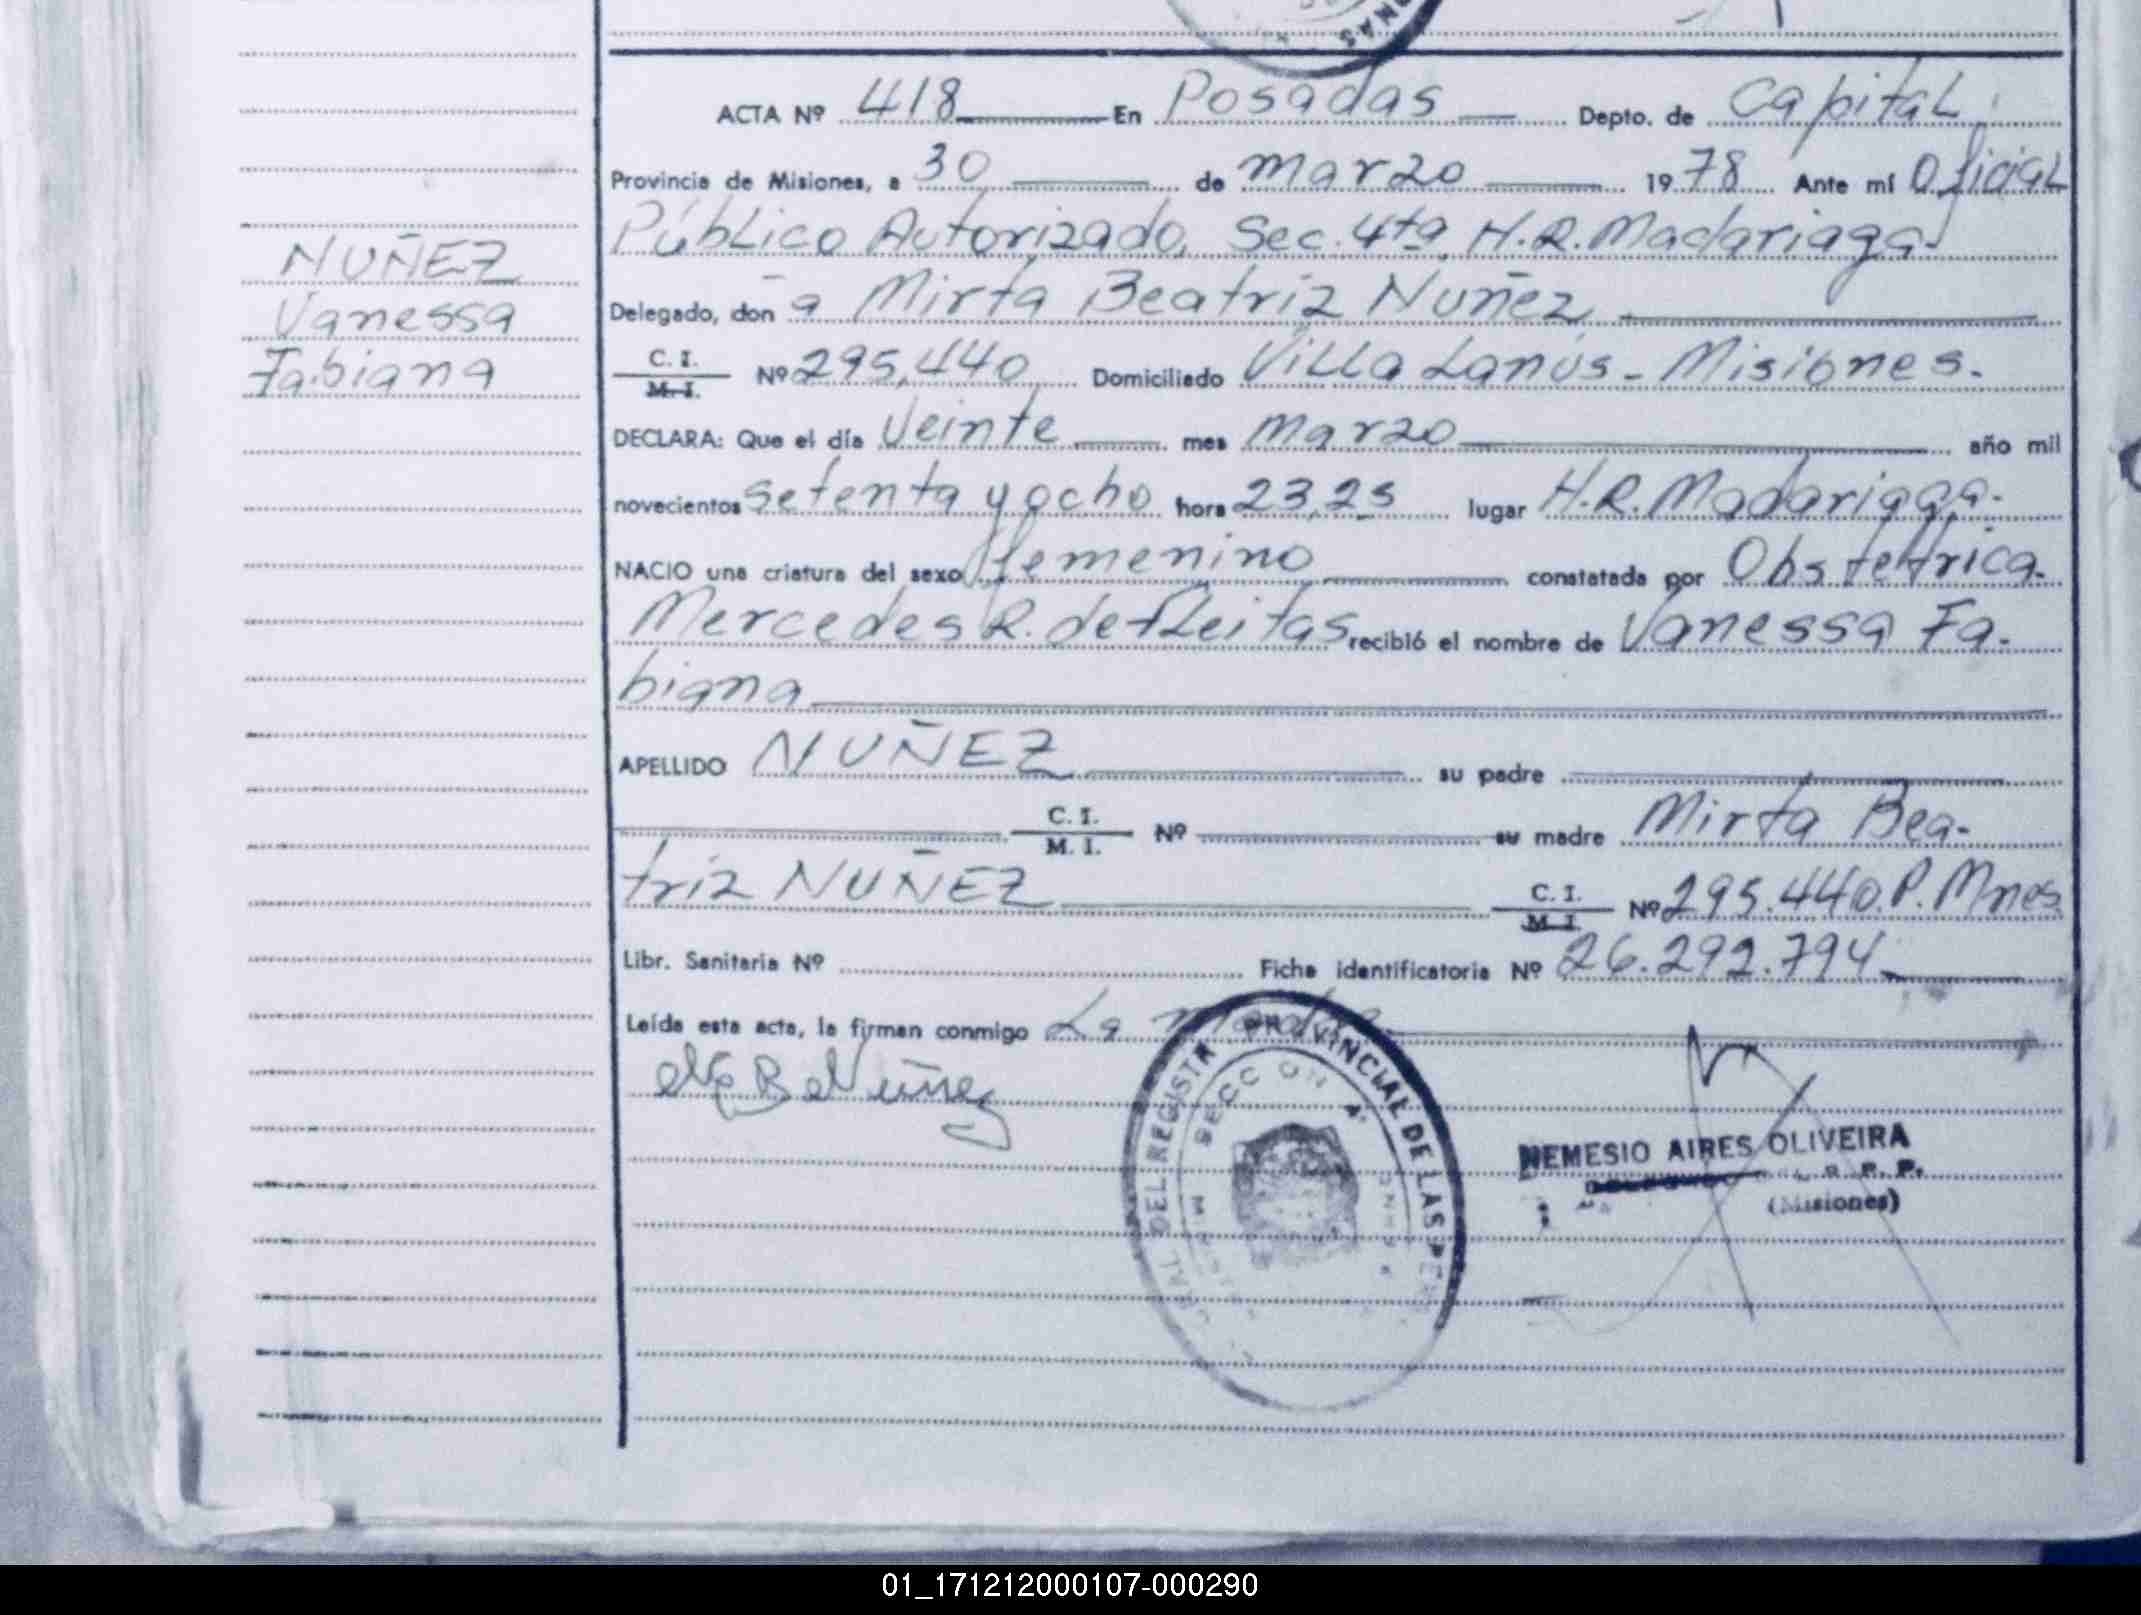 NAS
ACTA Nº 418 En Posadas Depto. de Capital,
Provincia de Misiones, a 30 de marzo 1978 Ante mí Oficial
Público Autorizado, Sec. 4ta, H.R. Madariaga.
NUÑEZ
Vanessa
Fabiana
Delegado, don a Mirta Beatriz Nuñez
C. I.
M. I. Nº 295,440 Domiciliado Villa Lanús - Misiones.
DECLARA: Que el día Veinte mes Marzo año mil
novecientos setenta y ocho hora 23,25 lugar H.R. Madariaga.
NACIO una criatura del sexo femenino constatada por Obstettrica.
Mercedes R. de Fleitas recibió el nombre de Vanessa Fa-
biana
APELLIDO NUÑEZ su padre
C. I.
M. I. Nº su madre Mirta Bea-
triz NUÑEZ C. I.
M. I. Nº 295.440.P.Mnes
Libr. Sanitaria Nº Ficha identificatoria Nº 26.292.794
Leída esta acta, la firman conmigo La madre
B Nuñez
DEL REGISTR PROVINCIAL DE LAS PE
SECCION 4ª
NEMESIO AIRES OLIVEIRA
R. P. P.
(Misiones)
01_171212000107-000290